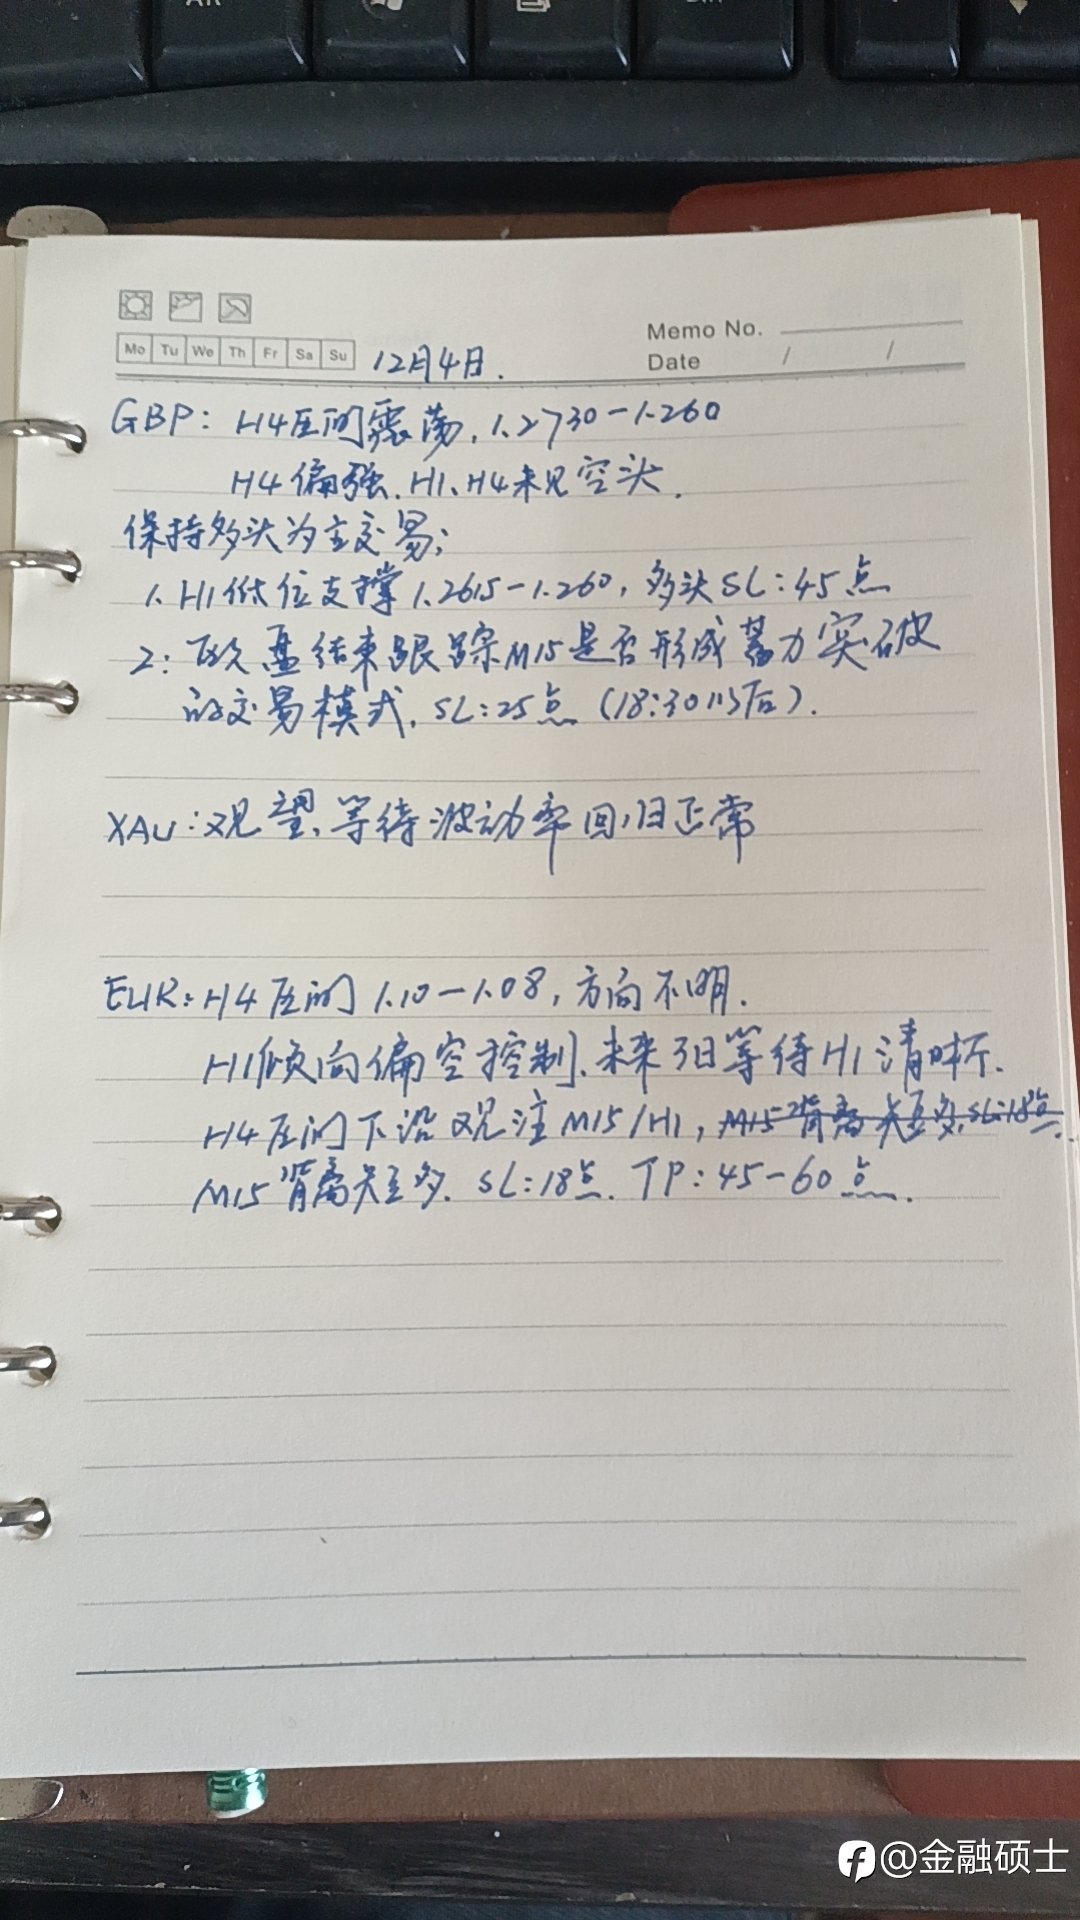 Mo Tu We Th Fr Sa Su
12月4日.
Memo No.
Date / /
GBP: H4区间震荡, 1.2730-1.260
H4偏强. H1、H4未见空头.
保持多头为主交易;
1. H1低位支撑1.2615-1.260, 多头SL:45点
2: 欧盘结束跟踪M15是否形成暴力突破
的交易模式. SL:25点 (18:30以后).
XAU:观望、等待波动率回归正常
EUR: H4区间 1.10-1.08, 方向不明.
H1倾向偏空控制. 未来3日等待H1清晰.
H4区间下沿观注M15/H1, M15背离短多. SL:18点.
M15背离短多. SL:18点. TP:45-60点.
@金融硕士